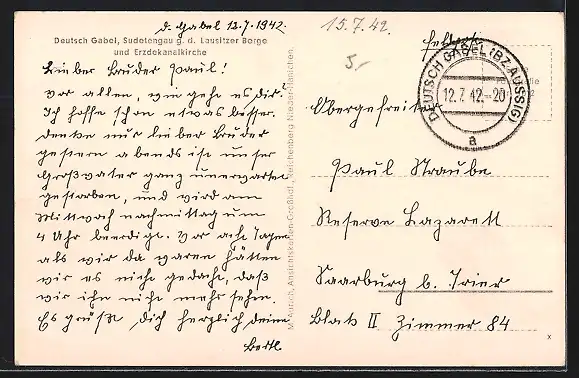 D. Gabel 12.7.1942.
Deutsch Gabel, Sudetengau g. d. Lausitzer Berge
und Erzdekanalkirche
Lieber Bruder Paul!
Vor allen, wie gehe es dir?
Ich hoffe schon etwas besser.
Denke nur lieber Bruder
gestern abends ist unser
Großvater ganz unerwartet
gestorben, und wird am
Mittwoch nachmittag um
4 Uhr beerdigt. Vor acht Tagen
als wir da waren hätten
wir es nicht gedacht, daß
wir ihn nicht mehr sehn.
Es grüßt dich herzlich deine
Bertl
M. Antoch, Ansichtskarten-Großhdl., Reichenberg Nieder-Hanichen.
15.7.42.
5,-
Feldpost
DEUTSCH GABEL (BZ. AUSSIG)
12.7.42.-20
a
Obergefreiter
Paul Straube
Reserve Lazarett
Saarburg b. Trier
Block II Zimmer 84
x